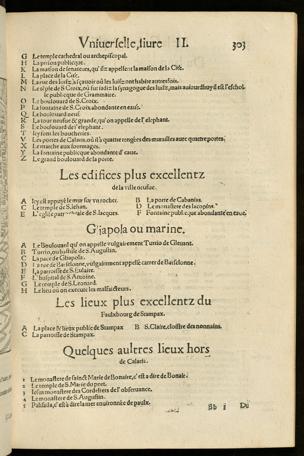 Vniuerselle, liure II. 303
G Le temple cathedral ou archepiscopal.
H La prison publicque.
K La maison de senateurs, qu'ilz appellent la maison de la Cité.
L La place de la Cité.
M La rue des Iuifz, à sçauoir où les Iuifz ont habité autresfois.
N Lesglyse de S. Croix, où fut iadiz la synagogue des Iuifz, mais auiourdhuy il est l'eschole
le publicque de Grammaire.
O Le boulouard de S. Croix.
P La fontaine de S. Croix abondante en eaus.
Q Le boulouard neuf.
R La tour neufue & grande, qu'on appelle de l'elephant.
S Le boulouard de l'elephant.
T Icy sont les boucheries.
V Les portes de Calaris, où il y a quattre rengées des murailles auec quattre portes.
X Le marché aux formages.
Y La fontaine publicque abondante d'eaue.
Z Le grand boulouard de la porte.
Les edifices plus excellentz
de la ville
A Icy est appuyé le mur sur vn rocher. B La porte de Cabanias.
C Le temple de S. Iehan. D Le monastere des Iacopins.
E L'eglise de S. Iacques. F Fontaine publicque abondante en eaue.
Giapola ou marine.
A Le Boulouard qu'on appelle vulgairement
B S. Augustin.
C La place de Giapola.
D La rue de Barselonne, vulgairement appellé carrer de Barselonne.
E La parroisse de S. Eulaire.
F L'hospital de S. Antoine.
G Le temple de S. Leonard.
H Le lieu où on execute les malfacteurs.
Les lieux plus excellentz du
Fauxbourg de Stampax.
A La place & lieux public de Stampax B S. Claire, cloistre des nonnains.
C La parroisse de Stampax.
Quelques aultres lieux hors
de Calaris.
1 Le monastere de sainct Marie de Bonaire, c'est a dire de Bonair.
2 Le temple de S. Marie du port.
3 Iesus monastere des Cordeliers de l'obseruance.
4 Le monastere de S. Augustin.
5 c'est à dire la mer enuironnée de paulx.
Bb i Du